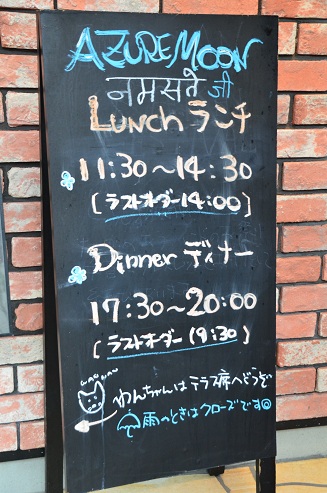 AZURE MOON
नमस्ते जी
Lunch ランチ
11:30～14:30
[ラストオーダー14:00]
Dinner ディナー
17:30～20:00
(ラストオーダー 19:30)
わんちゃんは テラス席へどうぞ
雨のときはクローズです